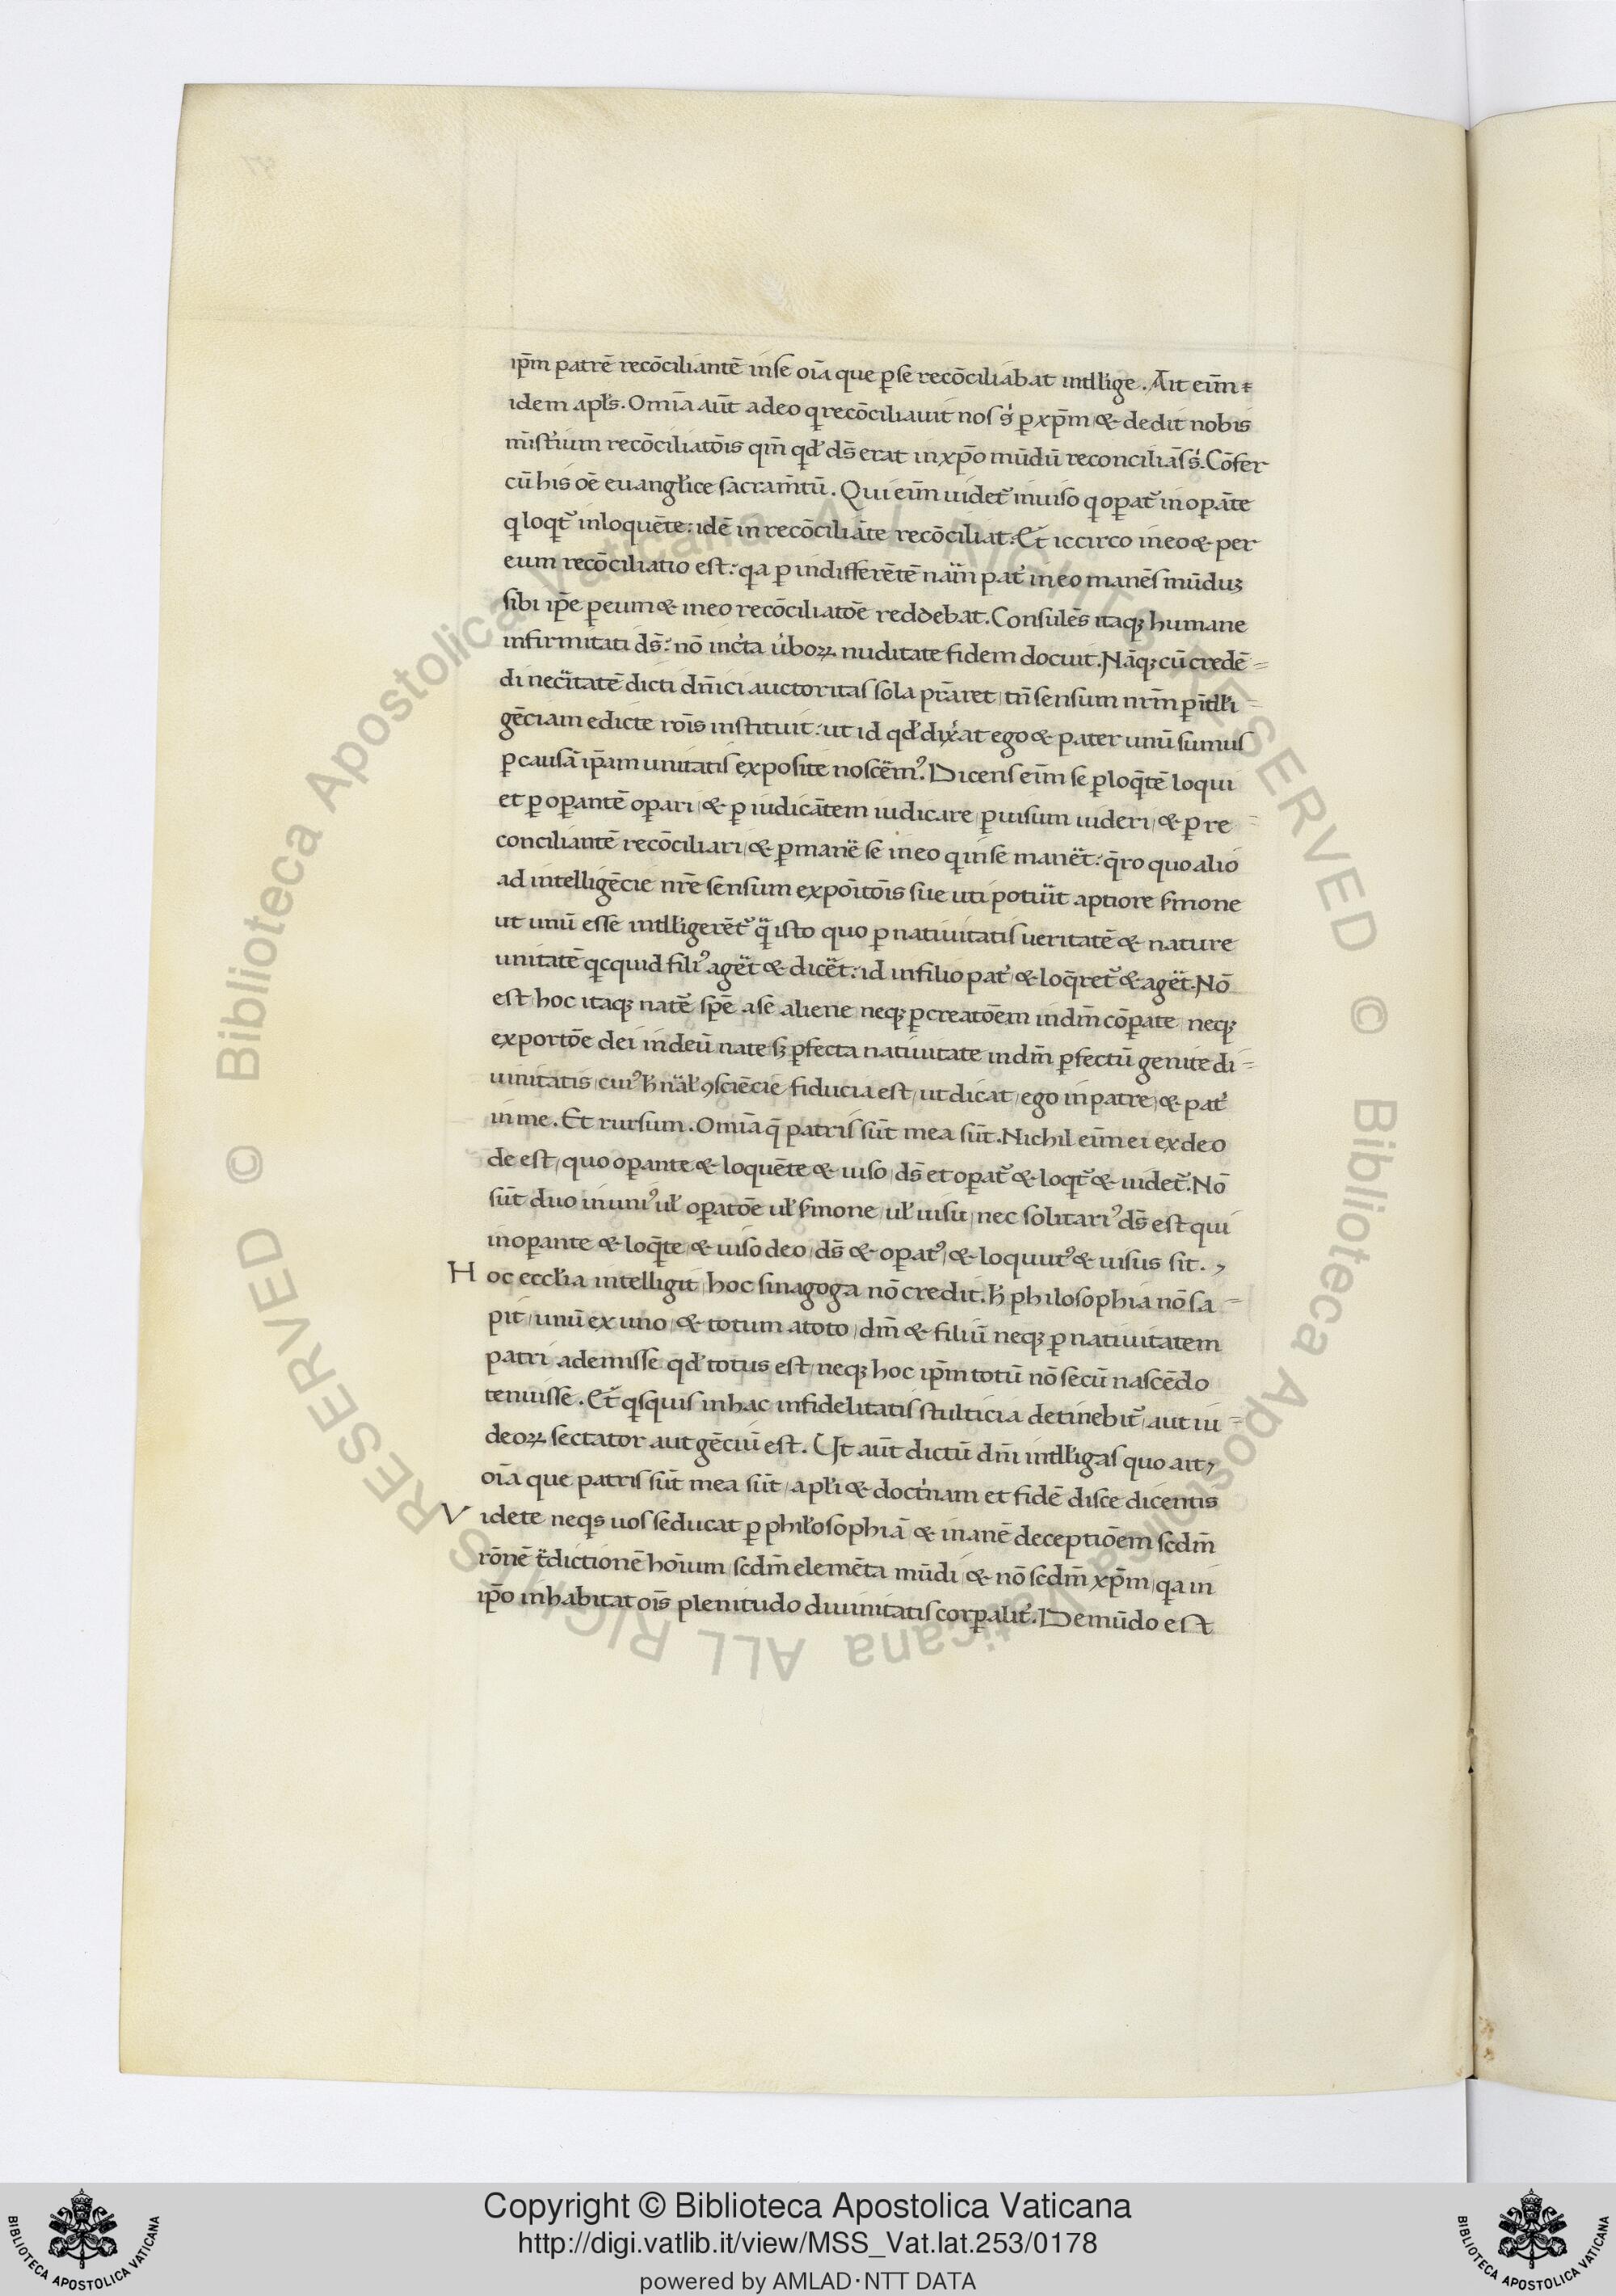 ip̄m patrē recōciliantē inse oı̄a que ꝑse recōciliabat intllige. Ait eı̄m
idem apl̄s. Omı̄a aūt adeo q recōciliauit nos sꝰ ꝑ xp̄m & dedit nobis
mı̄sterium recōciliatōis qm̄ qđ ds̄ erat in xp̄o mūdū reconcilia͞s s'. Cōfer
cū his oē euangl̄ice sacram̄tū. Qui eı̄m uidet᷑ inuiso q oꝑat᷑ in oꝑāte
q loqt᷑ inloquēte: idē in recōciliāte recōciliat. Et iccirco ineo & per
eum recōciliatio est: qa ꝑ indifferētē nām pat᷑ ineo manēs mūduꝫ
sibi ip̄e ꝑeum & ineo recōciliatōe reddebat. Consulēs itaqꝫ humane
infirmitati ds̄: nō incta u'boꝝ nuditate fidem docuit. Nāqꝫ cū credē=
di nec̄itatē dicti dn̄ici auctoritas sola pr̄aret, tn̄ sensum nr̄m ꝑ itll̄i=
gēciam edicte rōis instituit: ut id qđ dix'at ego & pater unū sumus
ꝑ causā ip̄am unitatis exposite noscem᷒. Dicens eı̄m se ꝑ loq̄tē loqui
et ꝑ oꝑantē oꝑari, & ꝑ iudicātem iudicare, ꝑ uisum uideri, & ꝑ re
conciliantē recōciliari, & ꝑmane se ineo q inse manet: q̄ro quo alio
ad intelligēcie nr̄e sensum expoı̄tōis sue uti potuit aptiore smone
ut unū esse intlligerēt᷑ q isto quo ꝑ natiuitatis ueritatē & nature
unitatē qcquid fili᷒ aget & dicet: id infilio pat᷑ & loq̄ret᷑ & aget. Nō
est hoc itaqꝫ nate spē ase aliene neqꝫ ꝑ creatōem indm̄ cōꝑate, neqꝫ
exportōe dei indeū nate sꝫ ꝑfecta natiuitate indm̄ ꝑfectū genite di=
uinitatis, cui᷒ h' nāl ꝯsciēcie fiducia est, ut dicat, ego inpatre, & pat᷑
in me. Et rursum. Omı̄a q̄ patris sūt mea sūt. Nichil eı̄m ei exdeo
de est, quo oꝑante & loquēte & uiso, ds̄ et oꝑat᷑ & loqt᷑ & uidet᷑. Nō
sūt duo inuni᷒ ul̄ oꝑatōe ul̄ smone, ul̄ uisu, nec solitari᷒ ds̄ est qui
inoꝑante & loq̄te, & uiso deo, ds̄ & oꝑat᷒, & loquut᷒ & uisus sit.
Hoc eccl̄ia intelligit, hoc sinagoga nō credit. h' philosophia nō sa=
pit, unū ex uno, & totum atoto, dm̄ & filiū neqꝫ ꝑ natiuitatem
patri ademisse qđ totus est, neqꝫ hoc ip̄m totū nō secū nascēdo
tenuisse. Et qsquis inhac infidelitatis stulticia detinebit᷑, aut iu=
deoꝝ sectator aut gēciū est. Ut aūt dictū dn̄i intll̄igas quo ait,
oı̄a que patris sūt mea sūt, apl̄i & doct'nam et fidē disce dicentis
Videte neqs uos seducat ꝑ phil̄osophiā, & inanē deceptiōem scdm̄
rōnē t̄dictionē hoı̄um, scdm̄ elemēta mūdi, & nō scdm̄ xp̄m, qa in
ip̄o inhabitat oı̄s plenitudo diuinitatis corꝑalit᷑. De mūdo est
Copyright © Biblioteca Apostolica Vaticana
http://digi.vatlib.it/view/MSS_Vat.lat.253/0178
powered by AMLAD·NTT DATA
BIBLIOTECA APOSTOLICA VATICANA
BIBLIOTECA APOSTOLICA VATICANA
© Biblioteca Apostolica Vaticana ALL RIGHTS RESERVED © Biblioteca Apostolica Vaticana ALL RIGHTS RESERVED